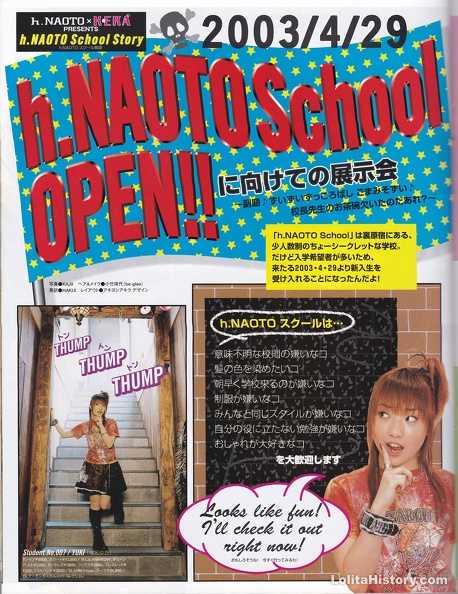 h.NAOTO × KERA
PRESENTS
h.NAOTO School Story
h.NAOTO スクール物語
2003/4/29
h.NAOTO School
OPEN!!
に向けての展示会
～副題♪ずいずいずっころばし ごまみそずい♪
校長先生のお茶碗欠いたのだあれ?～
「h.NAOTO School」は裏原宿にある、
少人数制のちょーシークレットな学校。
だけど入学希望者が多いため、
来たる2003・4・29より新入生を
受け入れることになったんだよ!
写真●KAJII ヘア&メイク●小竹珠代(be-glee)
英訳●HAKUI レイアウト●アキヨシアキラ デザイン
h.NAOTO スクールは…
意味不明な校則の嫌いなコ
髪の色を染めたいコ
朝早く学校来るのが嫌いなコ
制服が嫌いなコ
みんなと同じスタイルが嫌いなコ
自分の役に立たない勉強が嫌いなコ
おしゃれが大好きなコ
を大歓迎します
トン
THUMP
トン
THUMP
トン
THUMP
Looks like fun!
I'll check it out
right now!
おもしろそうね! 今すぐ行ってみるわ!
Student No.007 / YUKI
LolitaHistory.com